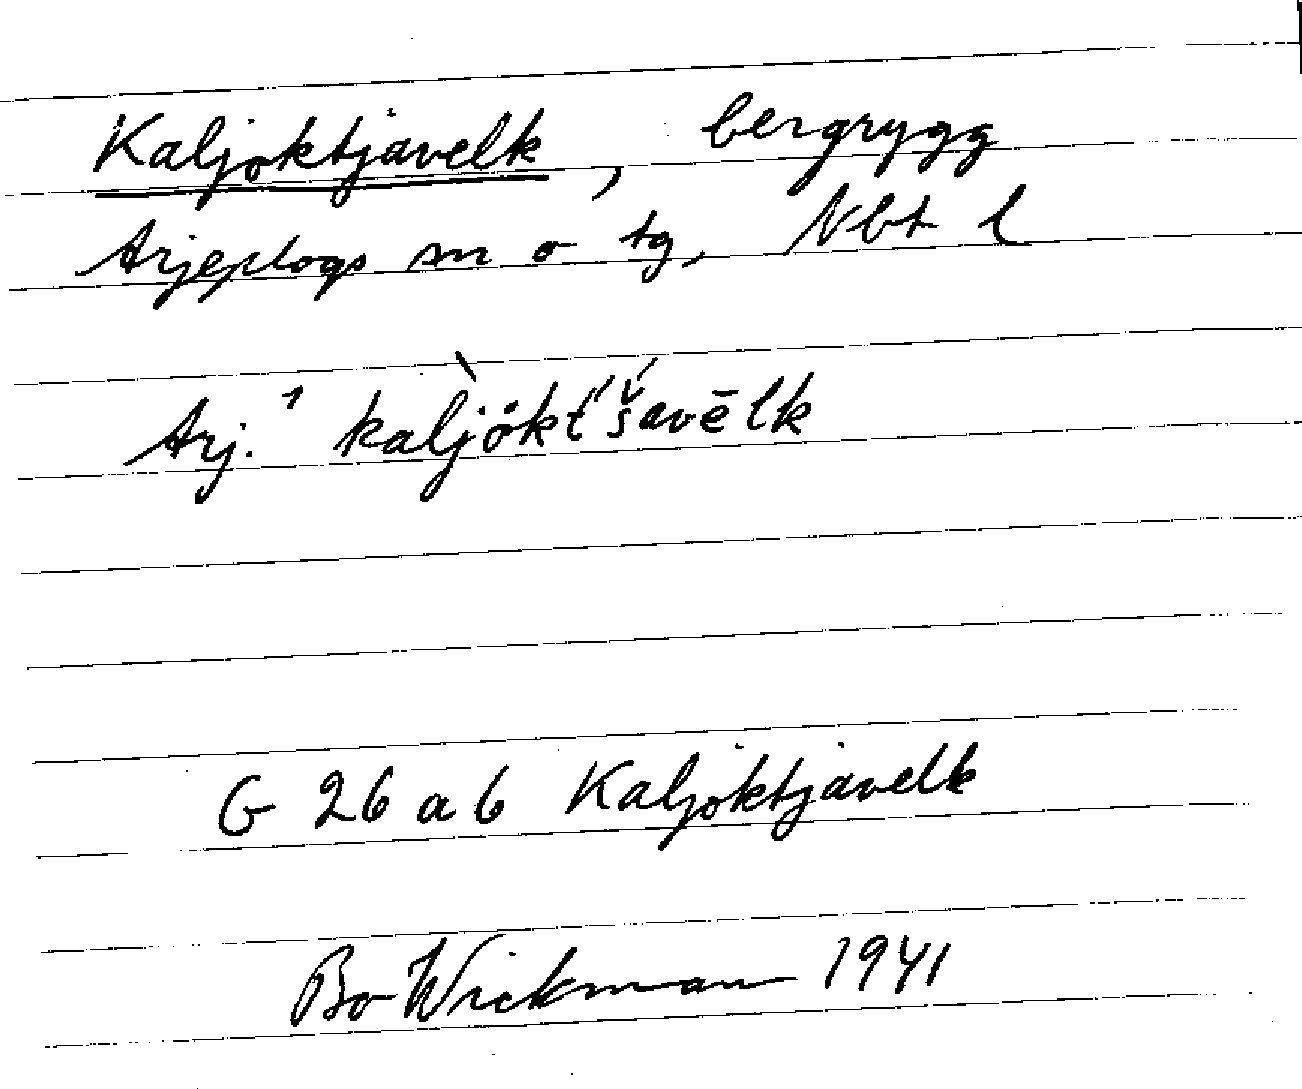 Kaljoktjavelk, bergrygg
Arjeplogs sn o tg, Nbt l
Arj.¹ kaljòkt́'š́avēlk
G 26 a b Kaljoktjavelk
Bo Wickman 1941